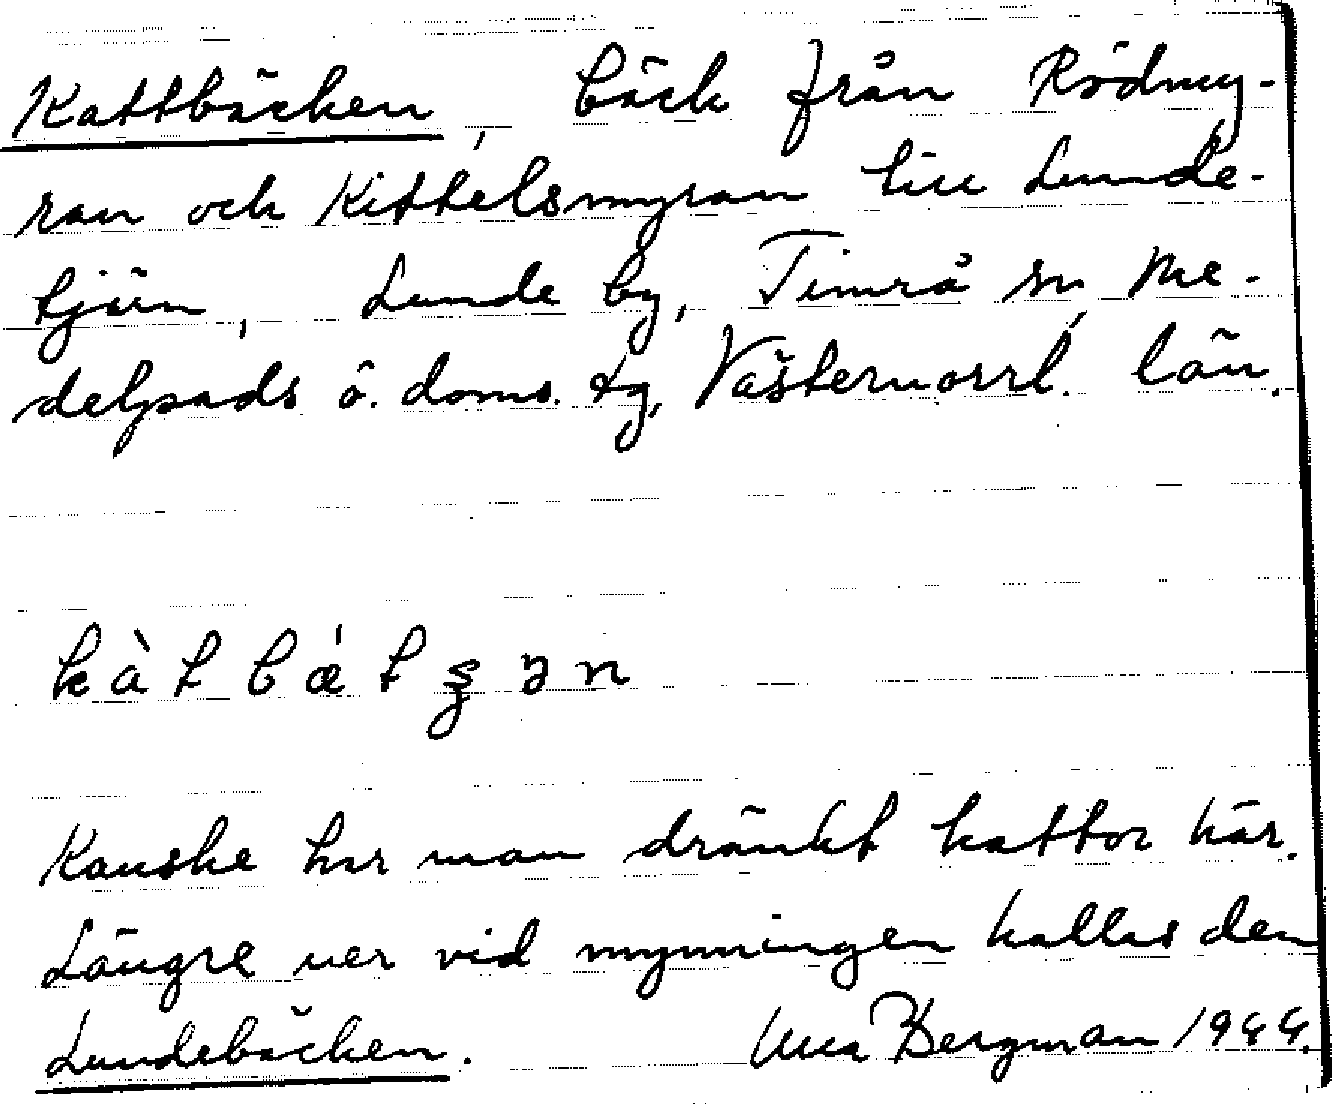 Kattbäcken, bäck från Rödmy-
ran och Kittelsmyran till Lunde-
tjärn, Lunde by, Timrå sn, Me-
delpads ö. doms. tg, Västernorrl. län.
kàtbǽtʂən
Kanske har man dränkt kattor här.
Längre ner vid mynningen kallas den
Lundebäcken. Bergman 1944.